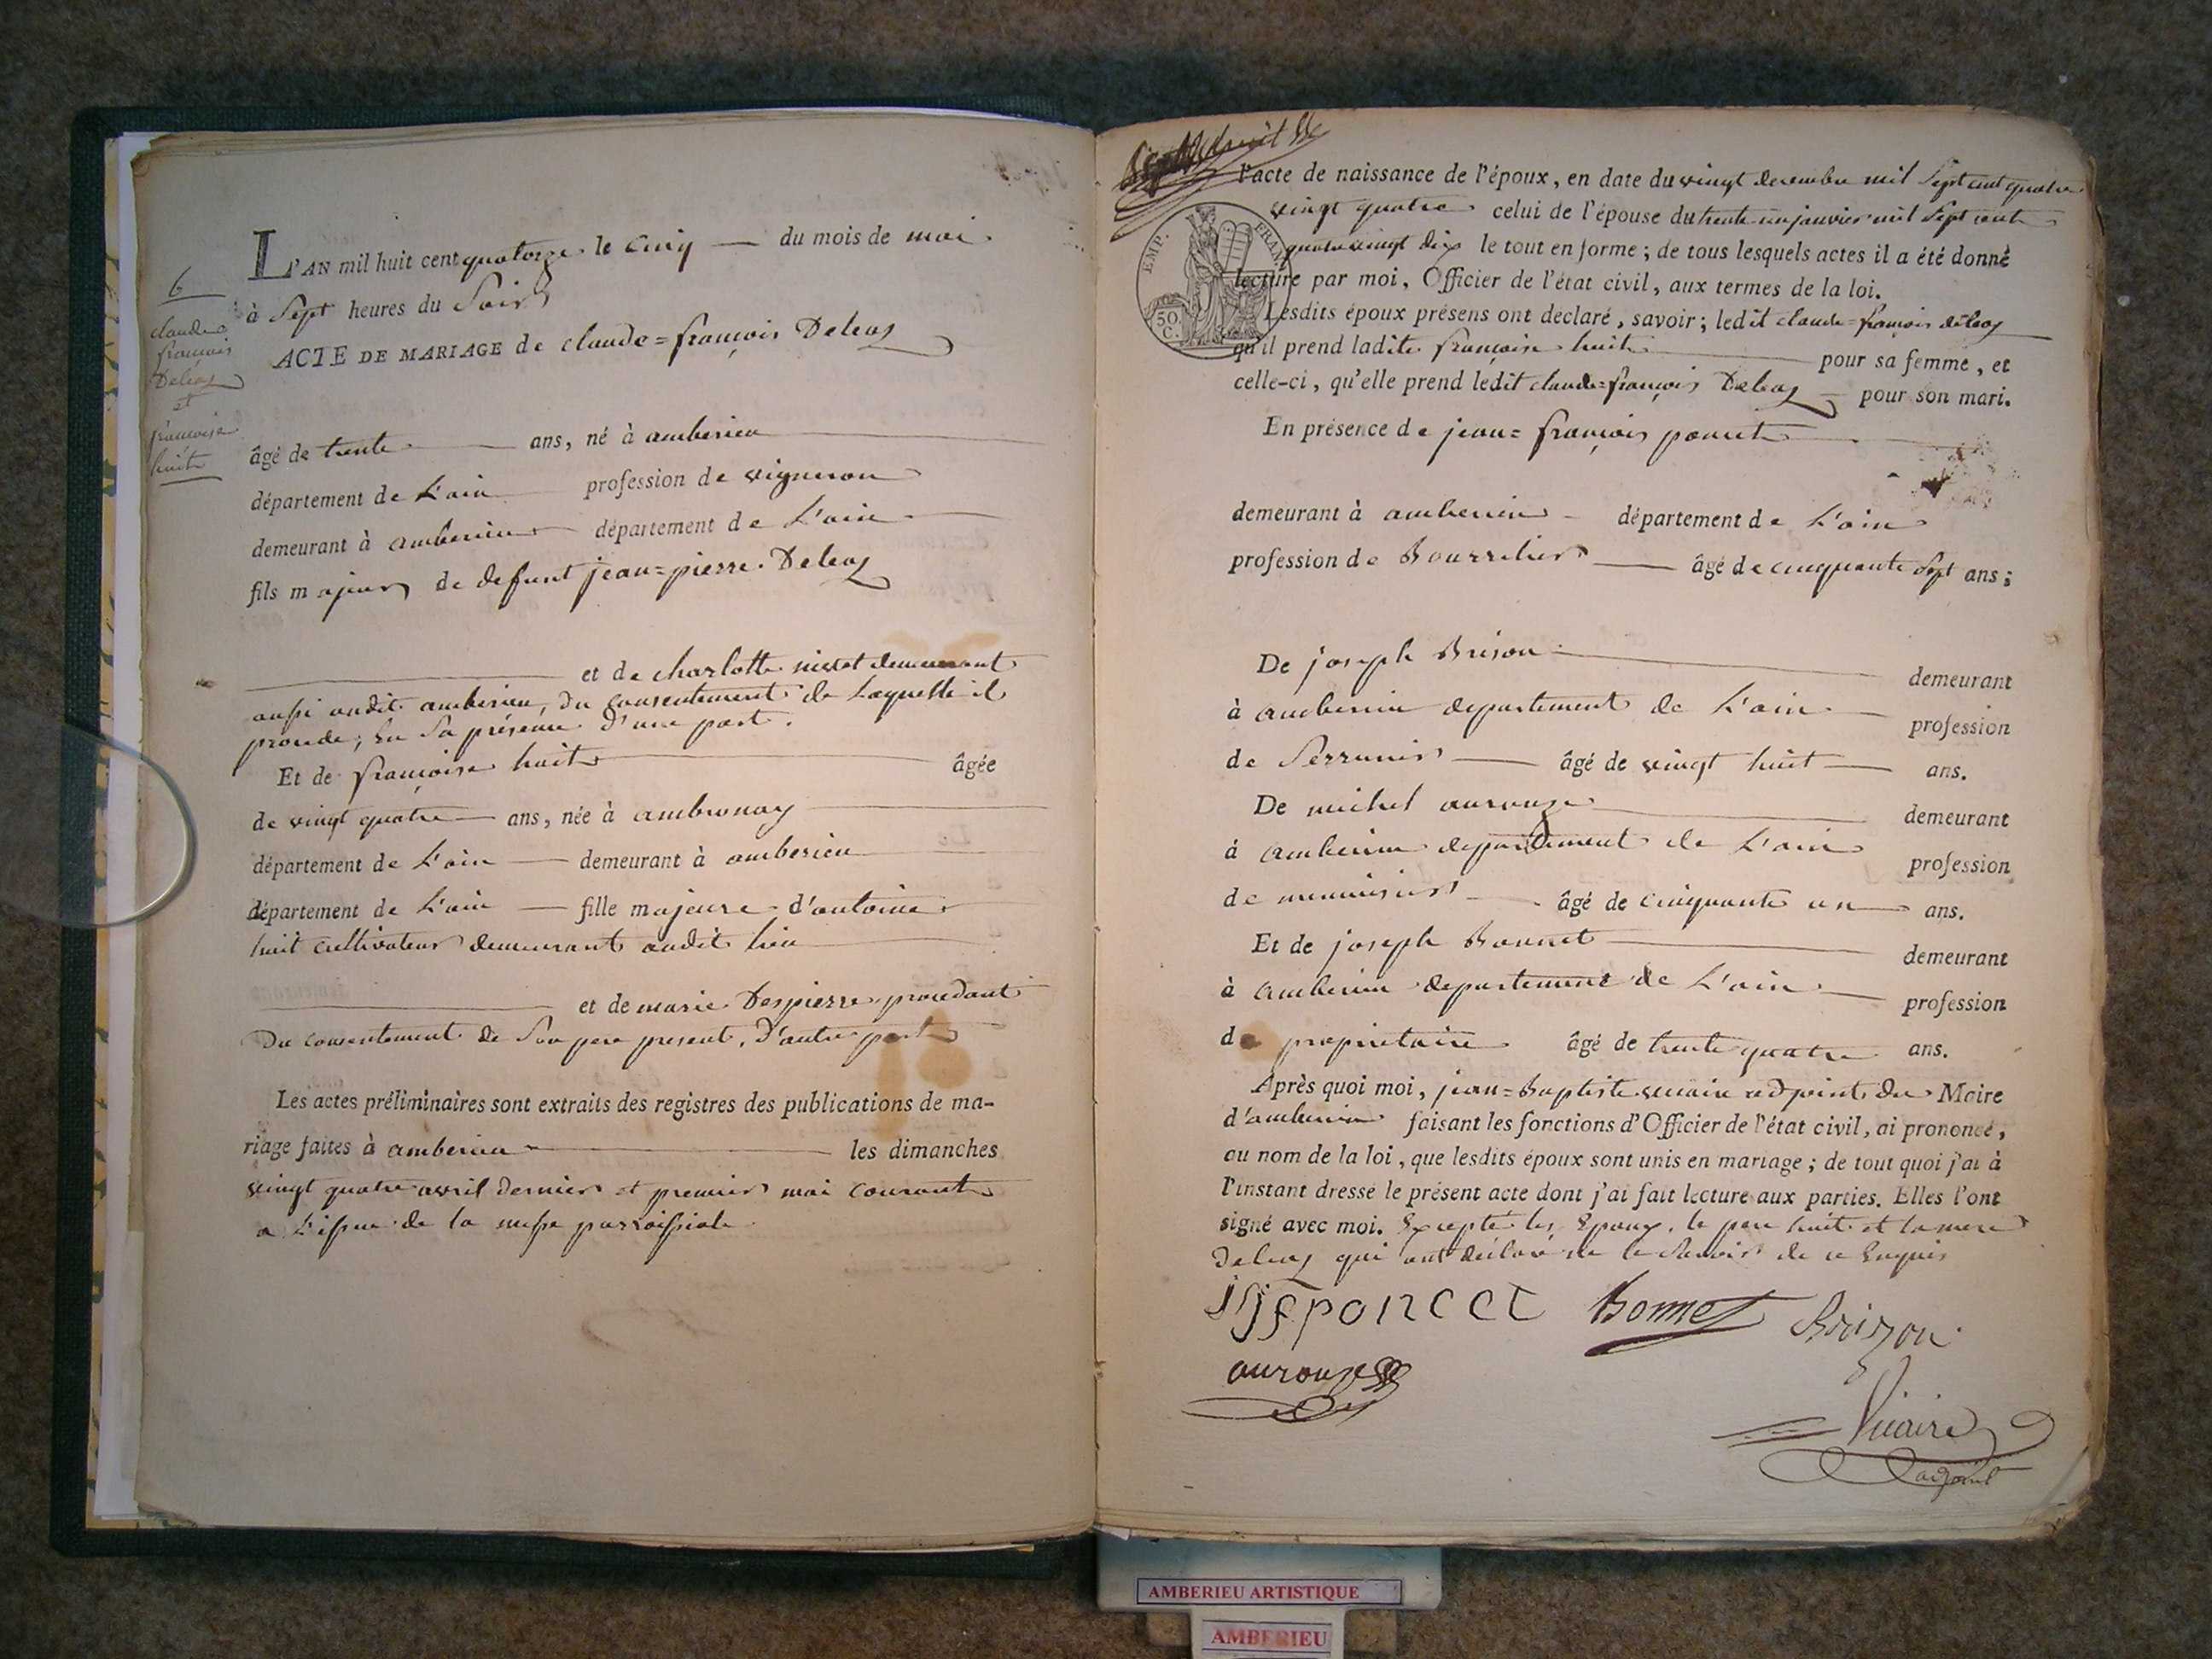 L'AN mil huit cent quatorze le cinq du mois de mai
à Sept heures du Soir
6
claude
françois
Deleaz
et
françoise
huit
ACTE DE MARIAGE de claude=françois Deleaz
âgé de trente ans, né à amberieu
département de L'ain profession de vigneron
demeurant à amberieu département de L'ain
fils majeur de defunt jean=pierre Deleaz
et de charlotte demeurant
aussi audit amberieu, du consentement de Laquelle il
procede, En Sa présence d'une part.
Et de françoise huit âgée
de vingt quatre ans, née à ambronay
département de L'ain demeurant à amberieu
département de L'ain fille majeure d'antoine
huit cultivateur demeurant audit lieu
et de marie Despierre procedant
Du consentement de Son pere present, d'autre part
Les actes préliminaires sont extraits des registres des publications de ma-
riage faites à amberieu les dimanches
vingt quatre avril dernier et premier mai courant
a L'issue de la messe parroissiale
l'acte de naissance de l'époux, en date du vingt decembre mil Sept cent quatre
vingt quatre celui de l'épouse du trente un janvier mil Sept cent
quatre vingt dix le tout en forme; de tous lesquels actes il a été donné
lecture par moi, Officier de l'état civil, aux termes de la loi.
EMP. FRAN
50.
C.
Lesdits époux présens ont déclaré, savoir; ledit claude=françois deleaz
qu'il prend ladite françoise huit pour sa femme, et
celle-ci, qu'elle prend ledit claude=françois Deleaz pour son mari.
En présence de jean=françois poncet
demeurant à amberieu département de L'ain
profession de Bourrelier âgé de cinquante Sept ans;
De joseph Brison demeurant
à amberieu departement de L'ain profession
de Serrurier âgé de vingt huit ans.
De michel aurouze demeurant
à amberieu departement de L'ain profession
de menuisier âgé de cinquante un ans.
Et de joseph Bonnet demeurant
à amberieu departement de L'ain profession
de proprietaire âgé de trente quatre ans.
Après quoi moi, jean=Baptiste vicaire adjoint du Maire
d'amberieu faisant les fonctions d'Officier de l'état civil, ai prononcé,
au nom de la loi, que lesdits époux sont unis en mariage; de tout quoi j'ai à
l'instant dressé le présent acte dont j'ai fait lecture aux parties. Elles l'ont
signé avec moi. Excepté les Epoux, le pere huit et la mere
Deleaz qui ont déclaré ne le Savoir de ce Enquis
jfponcet Bonnet Brizon
aurouze
Vicaire
adjoint
AMBERIEU ARTISTIQUE
AMBERIEU